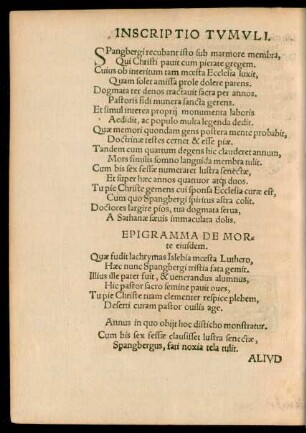 INSCRIPTIO TVMVLI.
SPangbergi recubant isto sub marmore membra,
Qui Christi pauit cum pietate gregem.
Cuius ob interitum tam mœsta Ecclesia luxit,
Quam solet amissa prole dolere parens.
Dogmata ter denos tractauit sacra per annos,
Pastoris fidi munera sancta gerens.
Et simul interea proprij monumenta laboris
Aedidit, ac populo multa legenda dedit.
Quæ memori quondam gens postera mente probabit,
Doctrinæ testes cernet & esse piæ.
Tandem cum quantum degens hic clauderet annum,
Mors similis somno languida membra tulit.
Cum bis sex fessæ numeraret lustra senectæ,
Et super hæc annos quatuor atq; duos.
Tu pie Christe gemens cui sponsa Ecclesia curæ est,
Cum quo Spangbergi spiritus astra colit.
Doctores largire pios, tua dogmata serua,
A Sathanæ sæuis immaculata dolis.
EPIGRAMMA DE MOR-
te eiusdem.
Quæ fudit lachrymas Islebia mœsta Luthero,
Hæc nunc Spangbergi tristia fata gemit.
Illius ille pater fuit, & venerandus alumnus,
Hic pastor sacro semine pauit oues,
Tu pie Christe tuam clementer respice plebem,
Deserti curam pastor ouilis age.
Annus in quo obijt hoc disticho monstratur.
Cum bis sex fessæ clausisset lustra senectæ,
Spangbergus, fati noxia tela tulit.
ALIVD